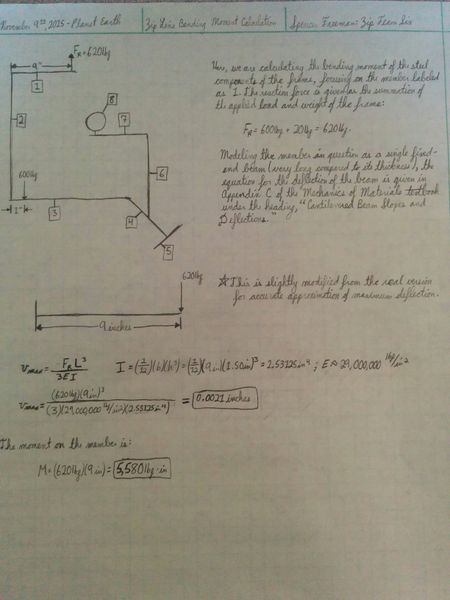 November 9th 2015 - Planet Earth
Zip Line Bending Moment Calculation
Spencer Freeman: Zip Team Six
9"
FR = 620lbf
1
8
7
2
6
600lbf
1"
3
4
5
Here, we are calculating the bending moment of the steel
components of the frame, focusing on the member labeled
as 1. The reaction force is given as the summation of
the applied load and weight of the frame:
FR = 600lbf + 20lbf = 620lbf.
Modeling the member in question as a single fixed-
end beam (very long compared to its thickness), the
equation for the deflection of the beam is given in
Appendix C of the Mechanics of Materials textbook
under the heading, "Cantilevered Beam Slopes and
Deflections."
620lbf
9 inches
☆ This is slightly modified from the real version
for accurate approximation of maximum deflection.
vmax = -FR L³ / 3EI
I = (1/12)(b)(h³) = (1/12)(9in)(1.50in)³ = 2.53125in⁴ ; E ≈ 29,000,000 lbf/in²
vmax = (620lbf)(9in)³ / (3)(29,000,000 lbf/in²)(2.53125in⁴) = 0.0021 inches
The moment on the member is:
M = (620lbf)(9in) = 5,580lbf·in